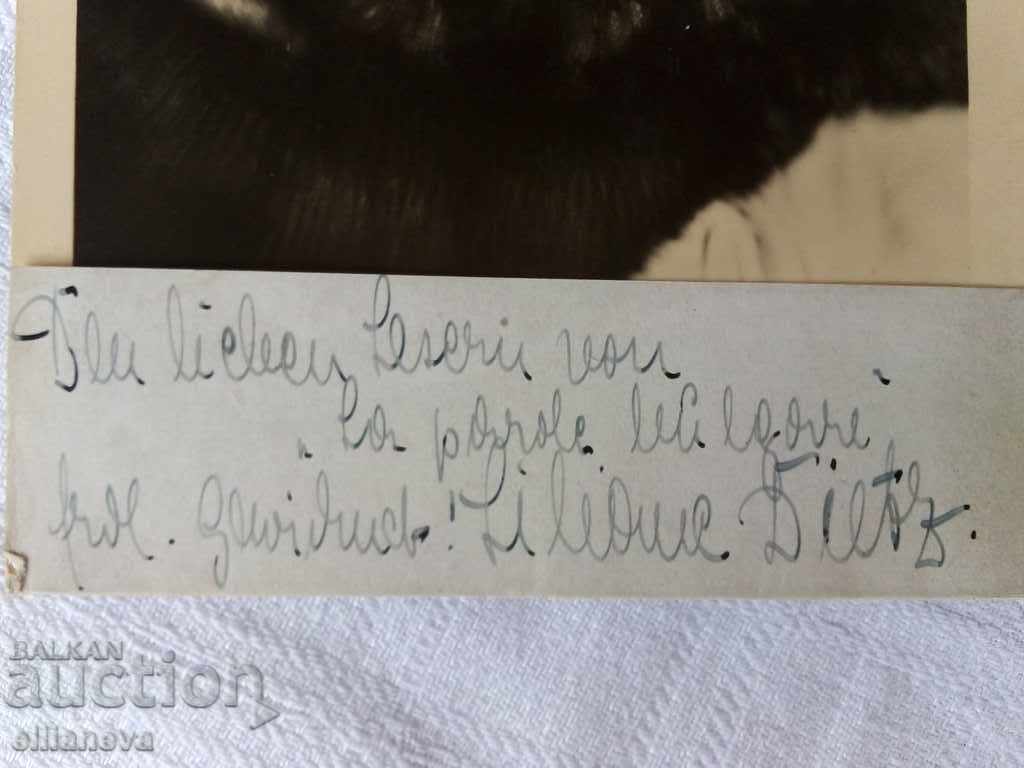 Den lieben Lesern von
„La parole bulgare"
frdl. gewidmet! Liliane Dietz.
BALKAN
auction
ellianeva